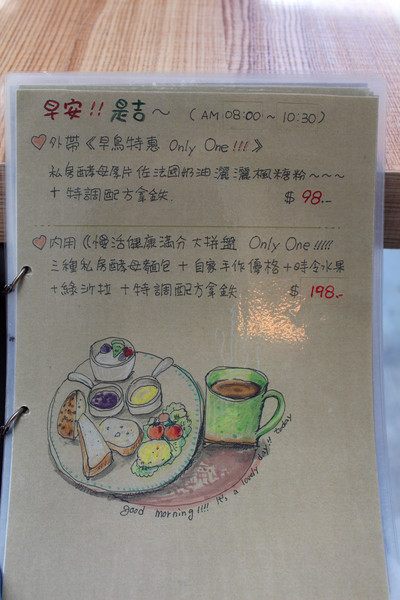 早安!! 是吉~ (AM 08:00 ~ 10:30)
外帶《早鳥特惠 Only One!!!》
私房酵母厚片佐法國奶油灑灑楓糖粉~~~
+特調配方拿鐵. $ 98.-
內用《慢活健康滿分大拼盤 Only One!!!!!
三種私房酵母麵包+自家手作優格+時令水果
+綠沙拉+特調配方拿鐵 $ 198.-
good morning!!!! It's a lovely day!! today